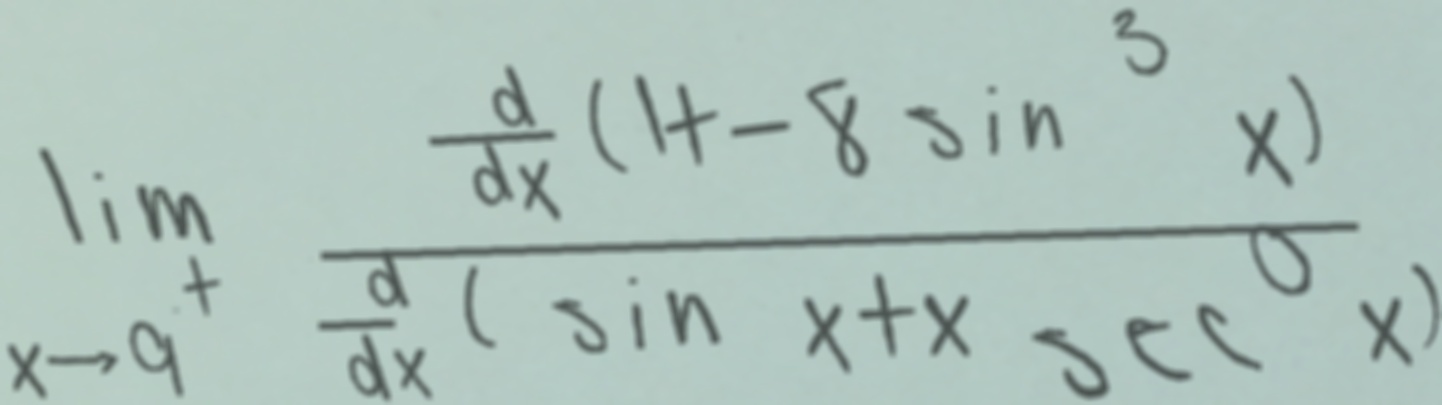 \lim_{x \to 9^+} \frac{\frac{d}{dx}(1t - 8 \sin^3 x)}{\frac{d}{dx}(\sin x + x \sec^0 x)}